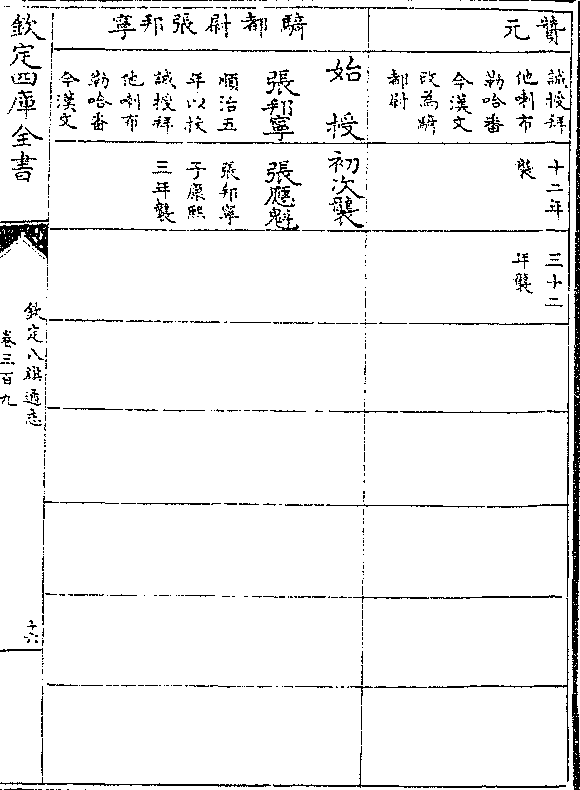 贊元
誠授拜
他喇布
勒哈番
今漢文
改為騎
都尉
十二年
襲
三十二
年襲
騎都尉張邦寧
始授
張邦寧
順治五
年以投
誠授拜
他喇布
勒哈番
今漢文
初次襲
張應魁
張邦寧
子康熙
三年襲
欽定四庫全書
欽定八旗通志
卷三百九
十六